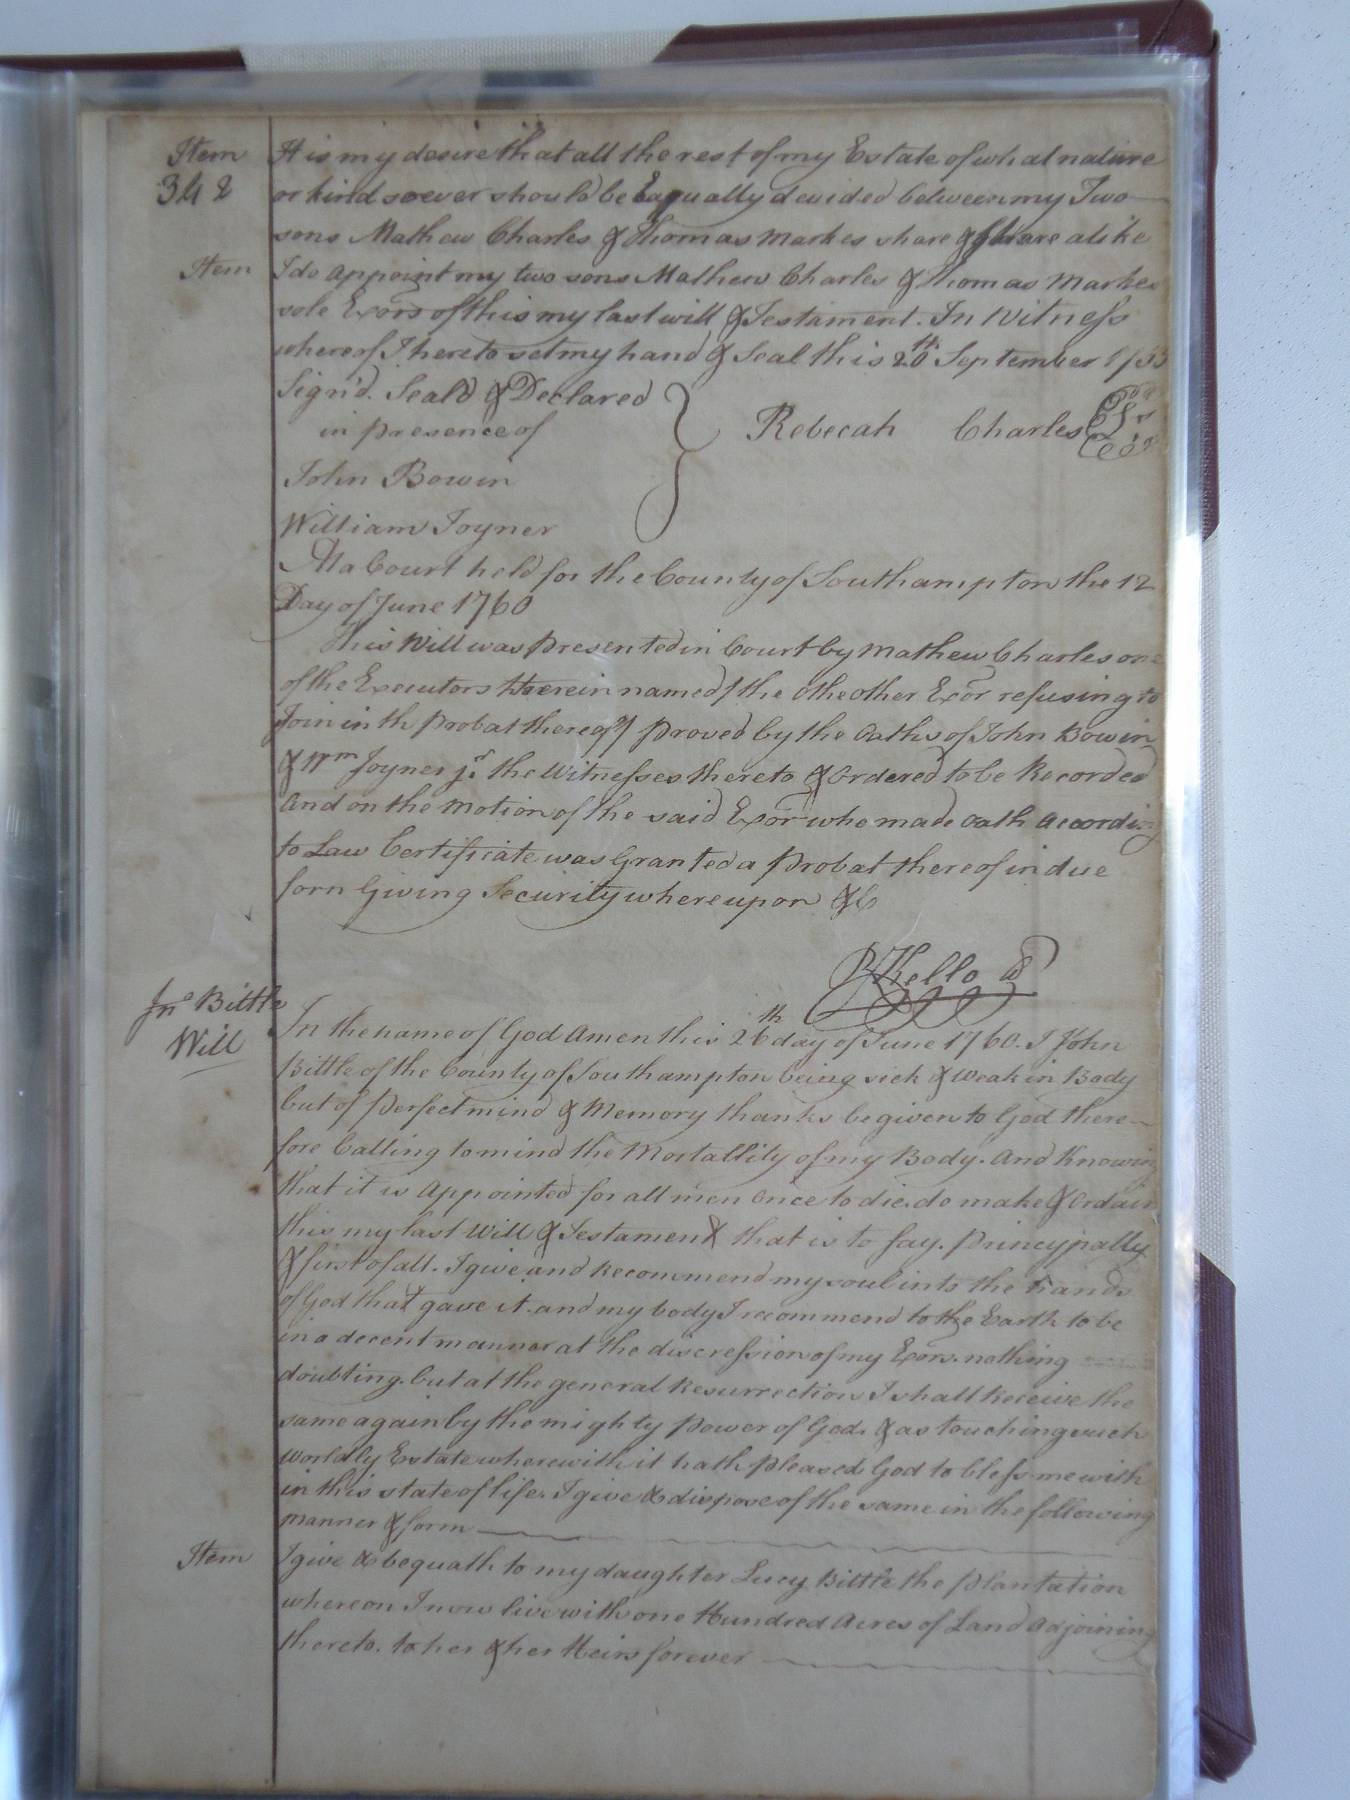 Item It is my desire that all the rest of my Estate of what nature
342 or kind soever should be Eaqually devided between my Two
sons Mathew Charles & Thomas Markes share & share alike
Item I do Appoint my two sons Mathew Charles & Thomas Markes
sole Exors of this my last will & Testament. In Witness
whereof I hereto set my hand & Seal this 20th September 1753
Sign'd. Seal'd & Declared
in presence of
Rebecah Charles
John Bowin
William Joyner
At a Court held for the County of Southampton the 12
Day of June 1760
This Will was presented in Court by Mathew Charles one
of the Executors therein named (the othe other Exor refusing to
Join in th probat thereof) proved by the Oaths of John Bowin
& Wm Joyner jr. the Witnesses thereto & Ordered to be Recorded
And on the Motion of the said Exor who made Oath According
to Law Certificate was Granted a probat thereof in due
form Giving Security whereupon &C
R Kello
Jno Bittle
Will
In the name of God Amen this 26th day of June 1760. I John
Bittle of the County of Southampton being sick & weak in Body
but of perfect mind & Memory thanks be given to God there-
fore Calling to mind the Mortallity of my Body. And Knowing
that it is Appointed for all men Once to die. do make & Ordain
this my last Will & Testament that is to say. principally
& first of all. I give and Recommend my soul into the hands
of God that gave it. and my body I recommend to the Earth to be
in a decent manner at the discression of my Exors. nothing
doubting. but at the general Resurrection I shall Receive the
same again by the mighty power of God. & as touching such
Worldly Estate wherewith it hath pleased God to bless me with
in this state of life. I give & dispose of the same in the following
manner & form
Item I give & bequath to my daughter Lucy Bittle the plantation
whereon I now live with one Hundred Acres of Land Adjoining
thereto. to her & her Heirs forever